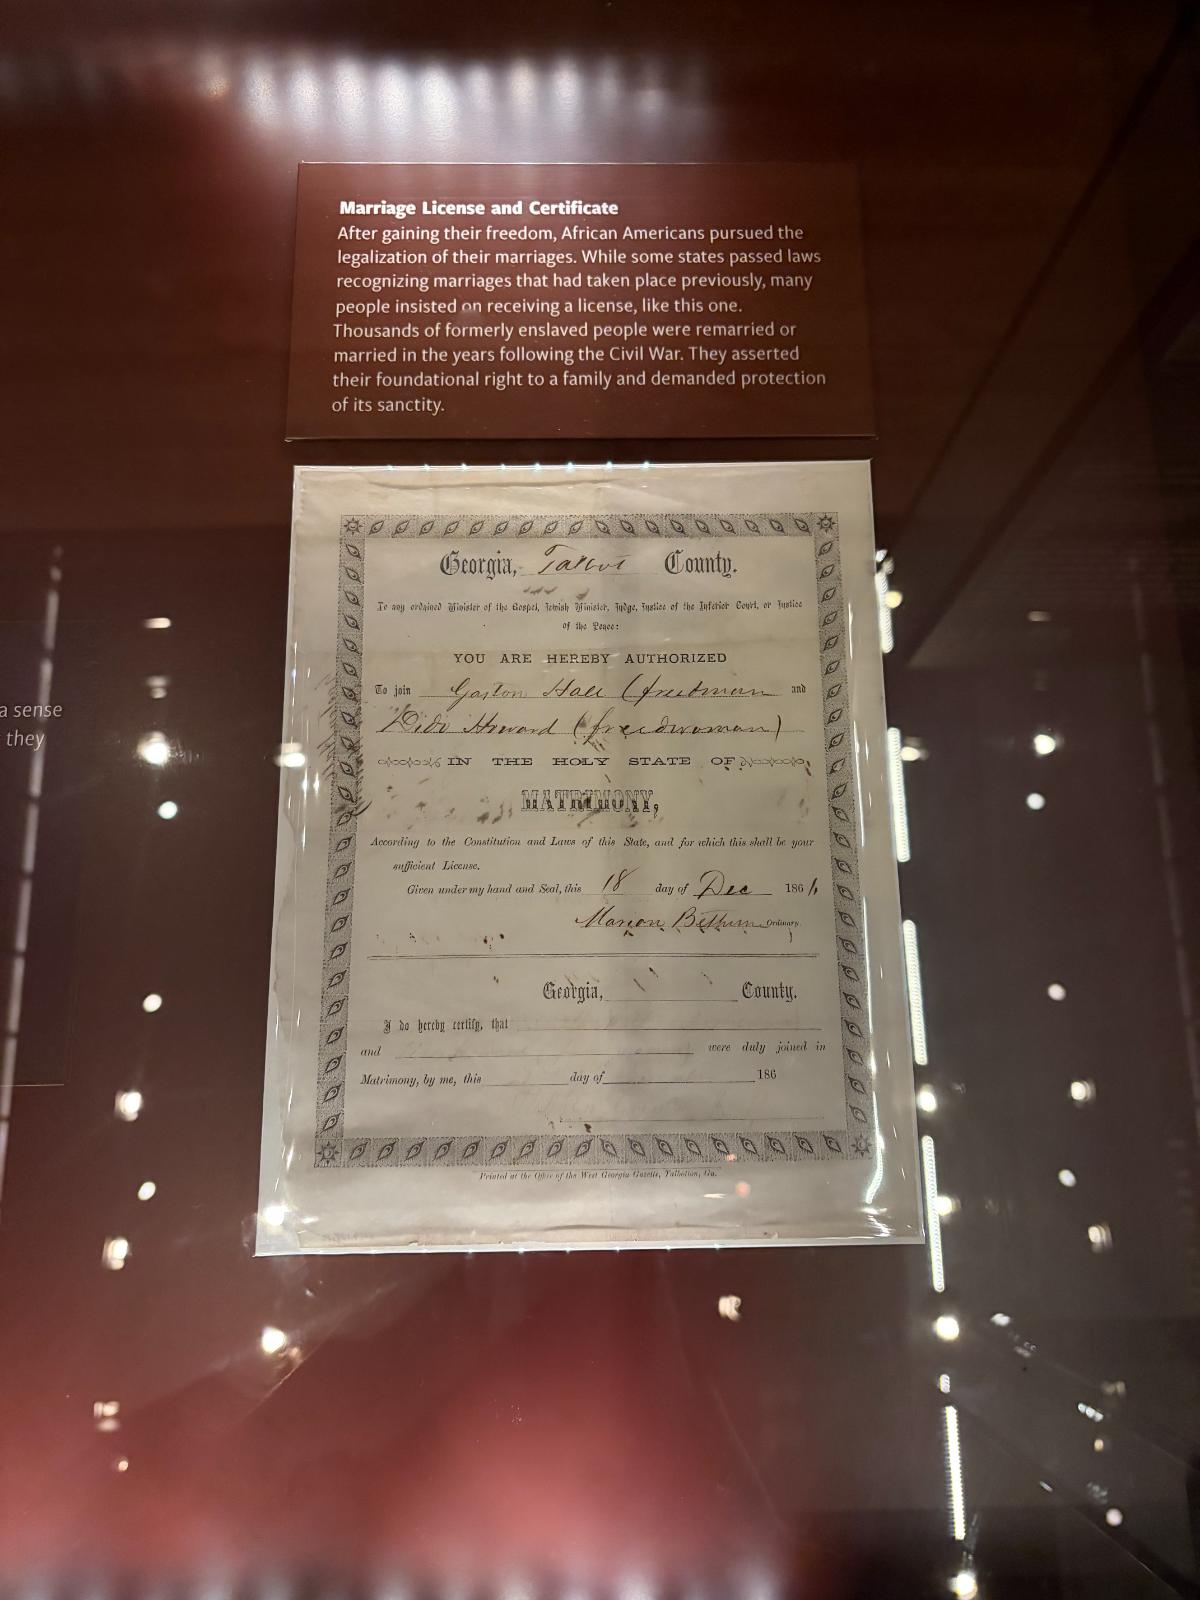 Marriage License and Certificate
After gaining their freedom, African Americans pursued the
legalization of their marriages. While some states passed laws
recognizing marriages that had taken place previously, many
people insisted on receiving a license, like this one.
Thousands of formerly enslaved people were remarried or
married in the years following the Civil War. They asserted
their foundational right to a family and demanded protection
of its sanctity.
a sense
they
Georgia, Talbot County.
To any ordained Minister of the Gospel, Jewish Minister, Judge, Justice of the Inferior Court, or Justice
of the Peace:
YOU ARE HEREBY AUTHORIZED
To join Gaston Hall (freedman and
Dido Howard (freedwoman)
IN THE HOLY STATE OF
MATRIMONY,
According to the Constitution and Laws of this State, and for which this shall be your
sufficient License.
Given under my hand and Seal, this 18 day of Dec 186
Marion Bethune Ordinary.
Georgia, County.
I do hereby certify, that
and were duly joined in
Matrimony, by me, this day of 186
Printed at the Office of the West Georgia Gazette, Talbotton, Ga.